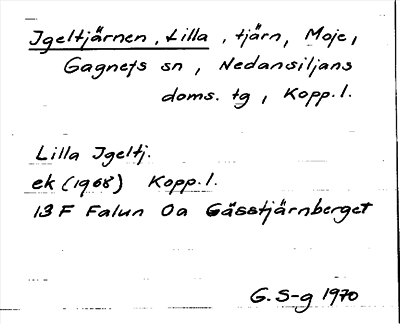 Igeltjärnen, Lilla, tjärn, Moje,
Gagnefs sn, Nedansiljans
doms. tg, Kopp.l.
Lilla Igeltj.
ek (1968) Kopp.l.
13 F Falun 0a Gässtjärnberget
G. S-g 1970